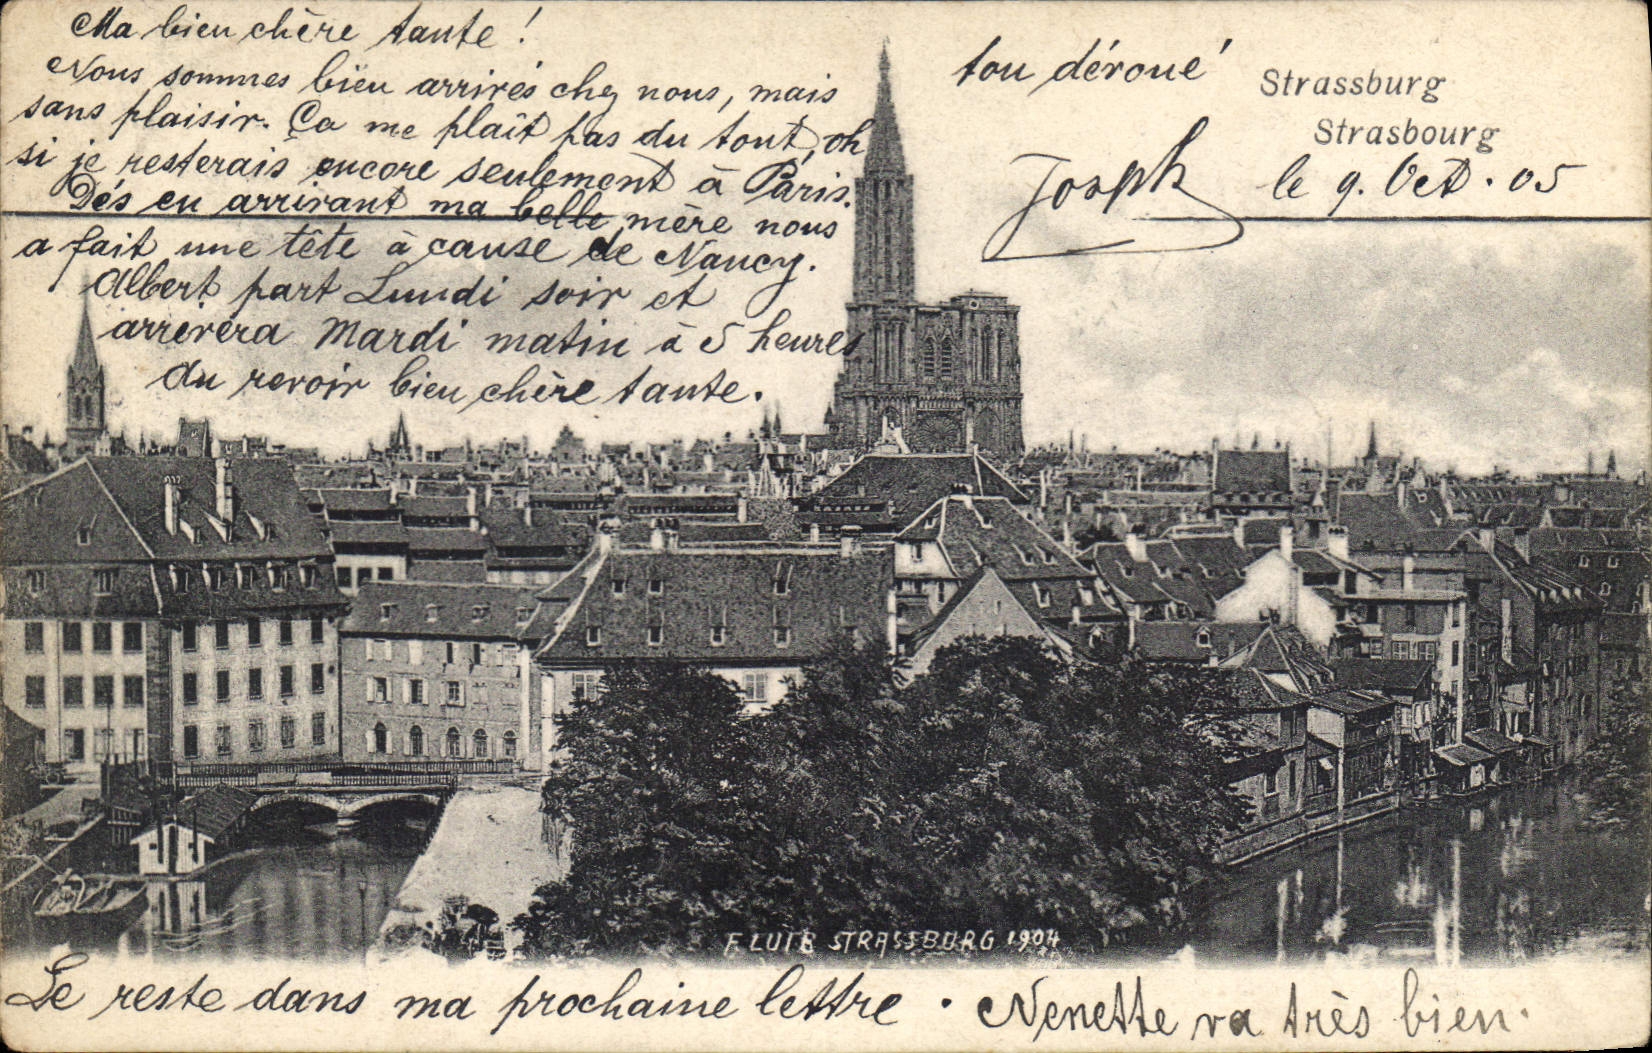 Ma bien chère tante !
Nous sommes bien arrivés chez nous, mais
sans plaisir. Ça me plaît pas du tout, oh
si je resterais encore seulement à Paris.
Dés en arrivant ma belle mère nous
a fait une tête à cause de Nancy.
Albert part Lundi soir et
arrivera Mardi matin à 5 heures
Au revoir bien chère tante.
ton déroué
Joseph
le 9. Oct. 05
Strassburg
Strasbourg
F LUIB STRASSBURG 1904
Le reste dans ma prochaine lettre .
Nenette va très bien.